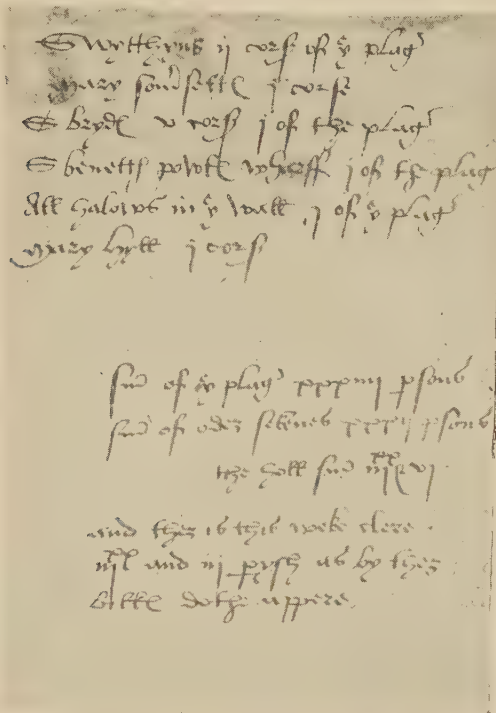 S Wytthyns ij cors of yͤ plag
mary som̄sett j corse
S Bryd v cors j of the plag
S benettſ powlſ wharff j of the plag
All halows in yͤ wall j of yͤ plag
mary hyll j cors
sum̄ of yͤ plag xxxiiij ꝑsons
sum̄ of oder seknes xxxij ꝑsons
the holl sum̄ iijˣˣ & vi
and ther is this weke clere .
iijˣˣ and iij ꝑysh as by ther
bille dothe appere.